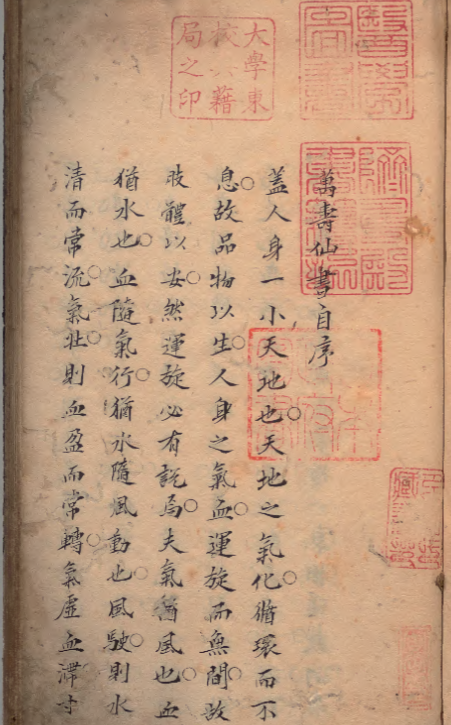 大學東
校典籍
局之印
萬壽仙書自序
蓋人身一小天地也○天地之氣化○循環而不
息○故品物以生○人身之氣血○運旋而無間○故
肢體以安○然運旋必有託焉○夫氣猶風也○血
猶水也○血隨氣行○猶水隨風動也○風駛○則水
清而常流○氣壯○則血盈而常轉○氣虛血滯